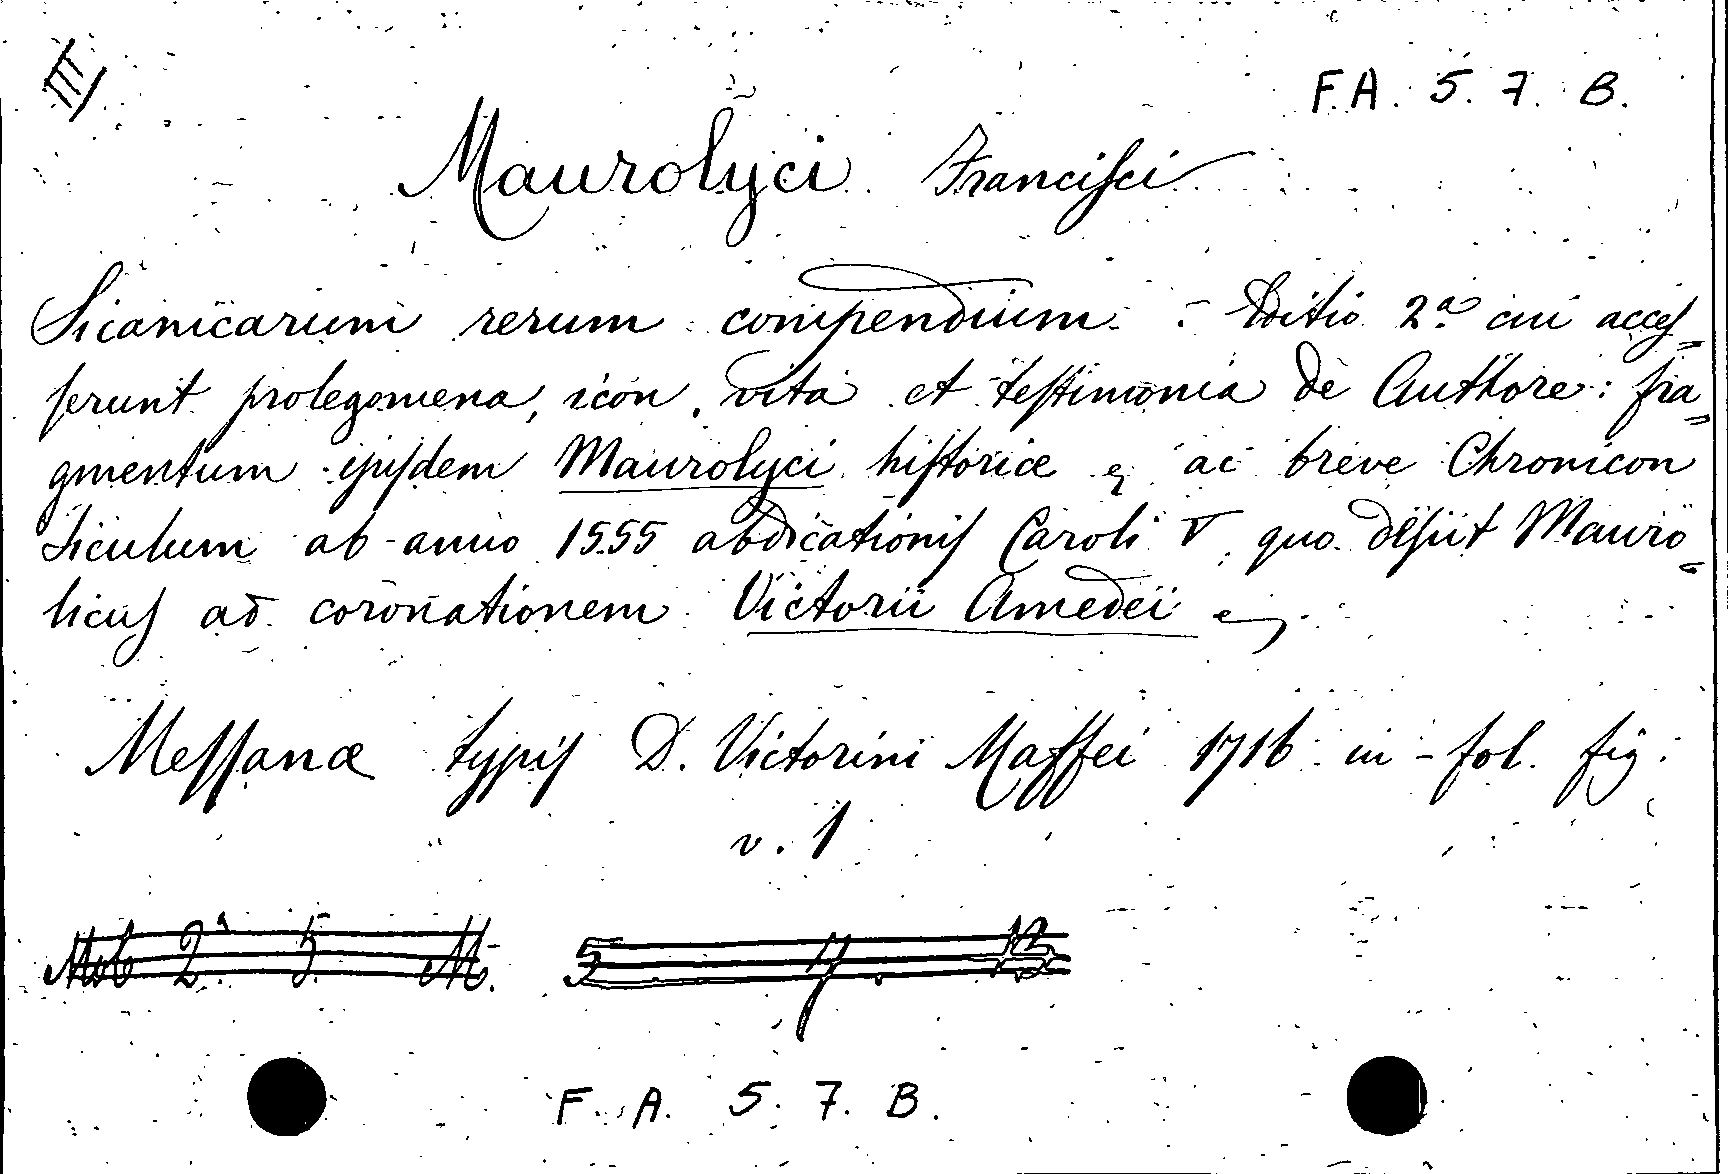 III
F.A. 5. 7. B.
Maurolyci Franciſci
Sicanicarum rerum compendium. : Editio 2.a cui acceſ„
ſerunt prolegomena, icon, vita et teſtimonia de Authore: fra„
gmentum ejuſdem Maurolyci hiſtorice & ac breve Chronicon
Siculum ab anno 1555 abdicationiſ Caroli V. quo deſiit Mauro„
licuſ ad coronationem Victorii Amedei
Meſſanæ typiſ D. Victorini Maffei 1716 in-fol. fig.
v. 1
Mob 2.a 5. M. 5 7. 12
F. A. 5. 7. B.